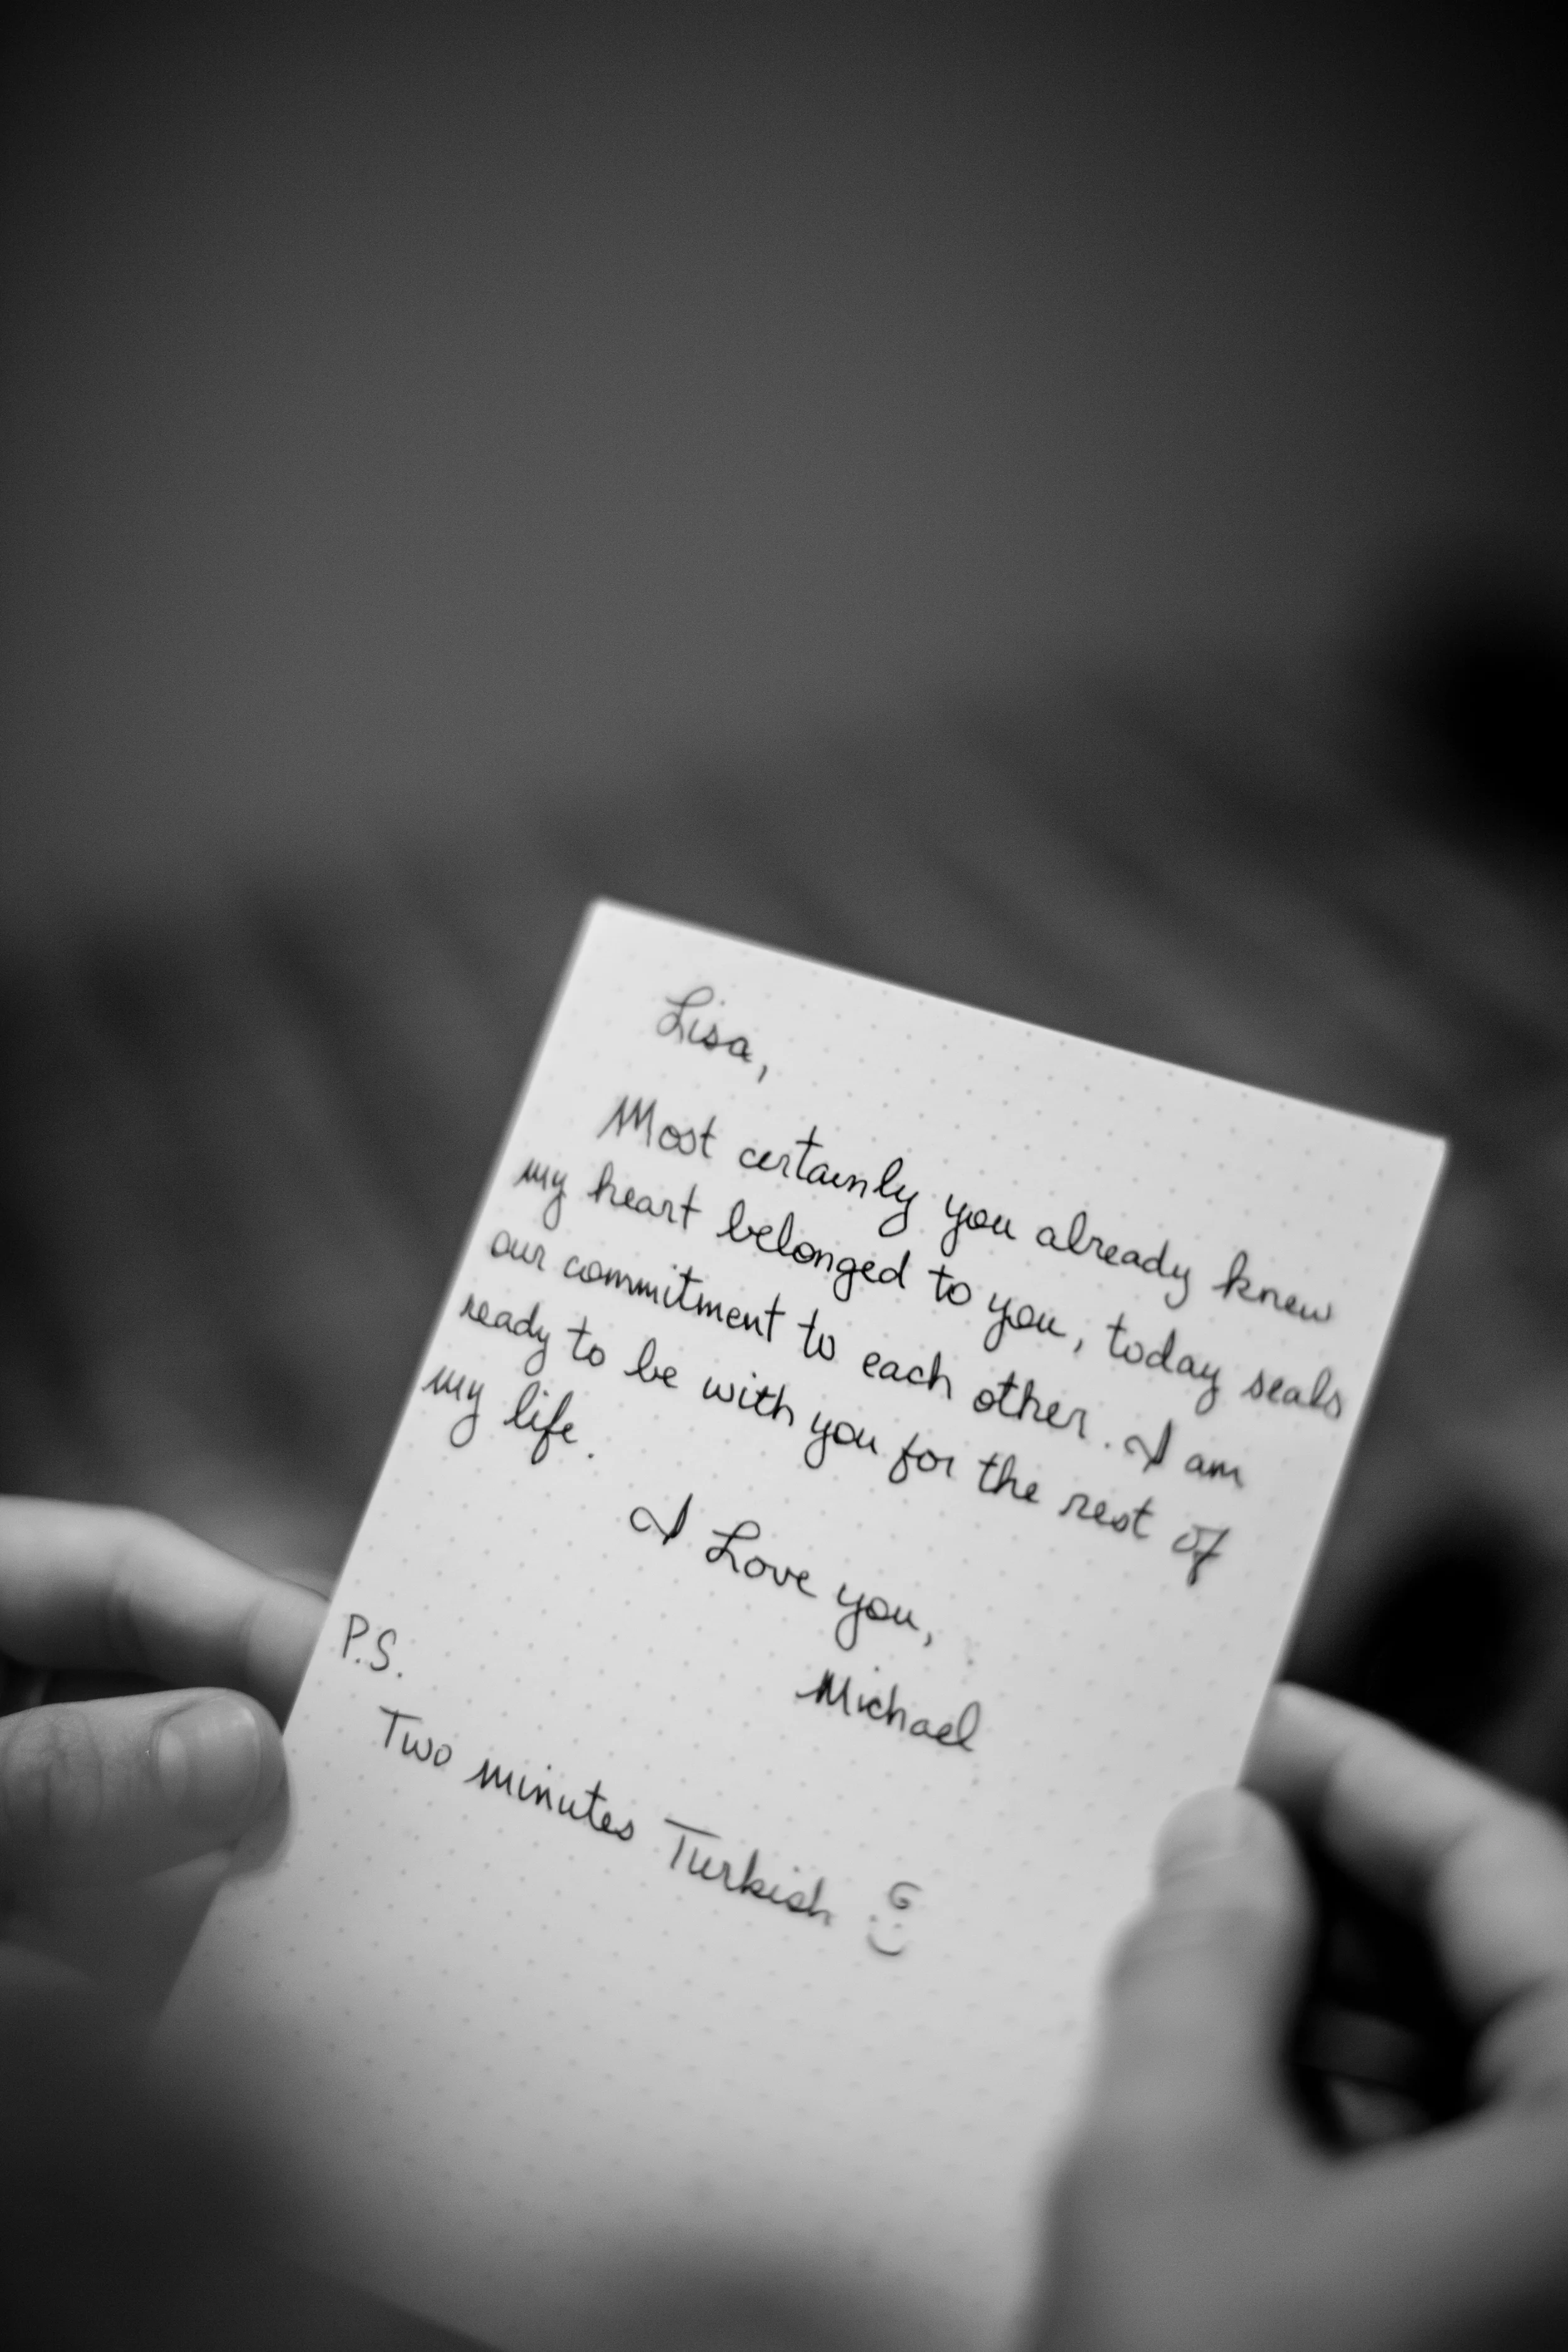 Lisa,
Most certainly you already knew
my heart belonged to you, today seals
our commitment to each other. I am
ready to be with you for the rest of
my life.
I Love you,
Michael
P.S.
Two minutes Turkish